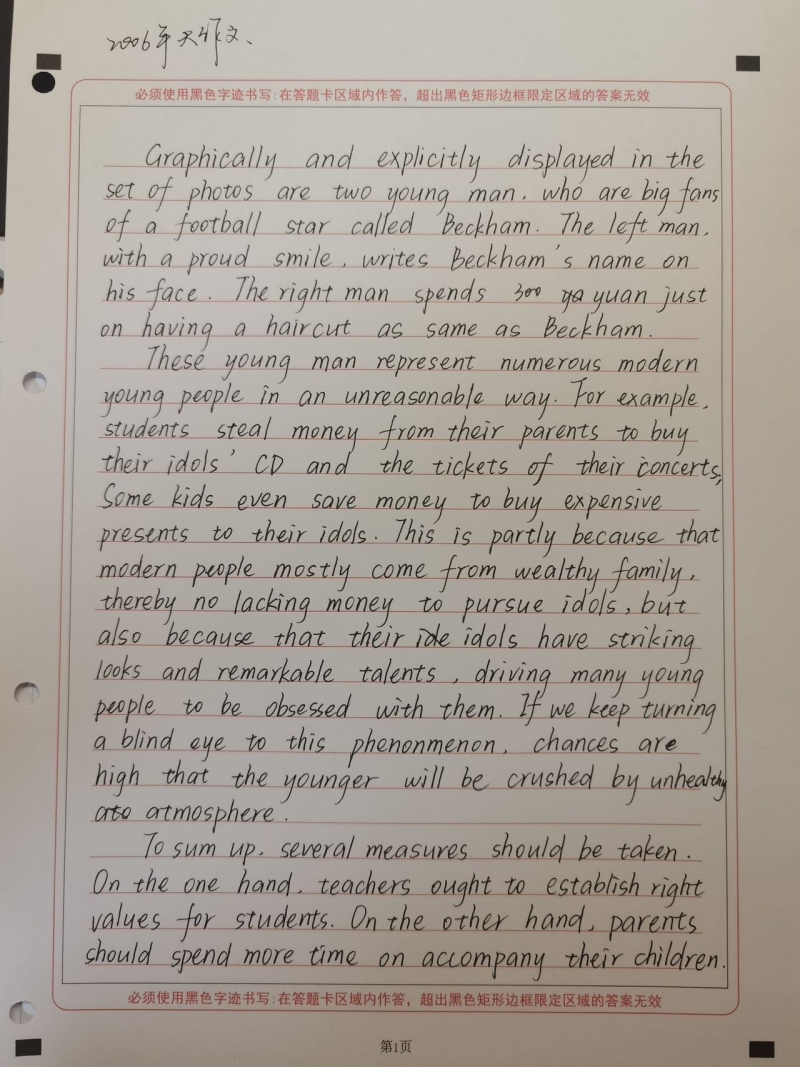 2006年大作文、
必须使用黑色字迹书写:在答题卡区域内作答，超出黑色矩形边框限定区域的答案无效
Graphically and explicitly displayed in the
set of photos are two young man, who are big fans
of a football star called Beckham. The left man,
with a proud smile, writes Beckham's name on
his face. The right man spends 300 yuan just
on having a haircut as same as Beckham.
These young man represent numerous modern
young people in an unreasonable way. For example,
students steal money from their parents to buy
their idols' CD and the tickets of their concerts;
Some kids even save money to buy expensive
presents to their idols. This is partly because that
modern people mostly come from wealthy family,
thereby no lacking money to pursue idols, but
also because that their idols have striking
looks and remarkable talents, driving many young
people to be obsessed with them. If we keep turning
a blind eye to this phenonmenon, chances are
high that the younger will be crushed by unhealthy
atmosphere.
To sum up, several measures should be taken.
On the one hand, teachers ought to establish right
values for students. On the other hand, parents
should spend more time on accompany their children.
必须使用黑色字迹书写:在答题卡区域内作答，超出黑色矩形边框限定区域的答案无效
第1页